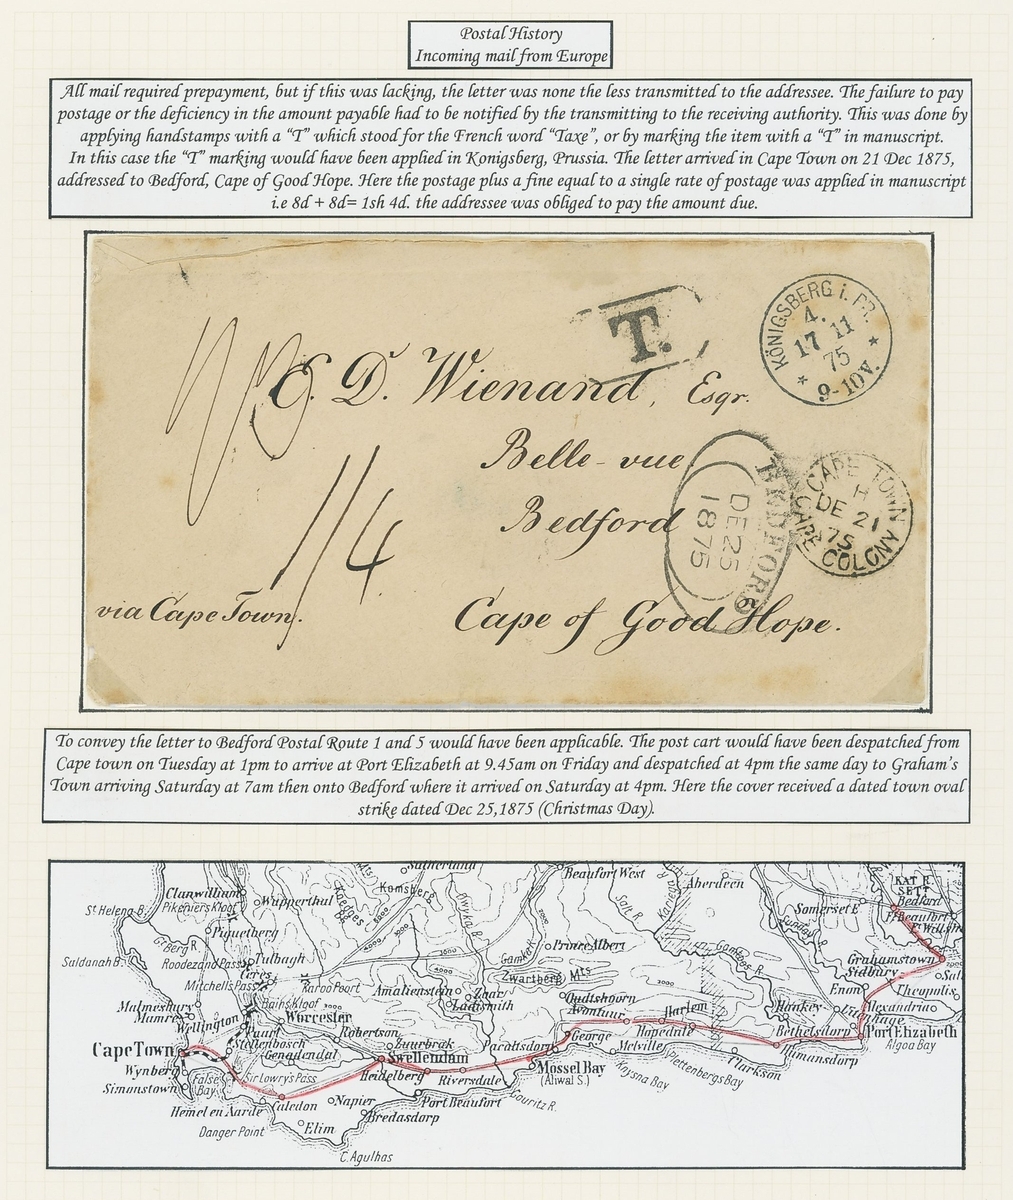 Postal History
Incoming mail from Europe
All mail required prepayment, but if this was lacking, the letter was none the less transmitted to the addressee. The failure to pay
postage or the deficiency in the amount payable had to be notified by the transmitting to the receiving authority. This was done by
applying handstamps with a “T” which stood for the French word “Taxe”, or by marking the item with a “T” in manuscript.
In this case the “T” marking would have been applied in Konigsberg, Prussia. The letter arrived in Cape Town on 21 Dec 1875,
addressed to Bedford, Cape of Good Hope. Here the postage plus a fine equal to a single rate of postage was applied in manuscript
i.e 8d + 8d= 1sh 4d. the addressee was obliged to pay the amount due.
T.
KÖNIGSBERG i. PR.
4.
17 11
75
9-10V.
E. D. Wienand, Esqr.
Belle-vue
Bedford
Cape of Good Hope.
via Cape Town.
1/4
BEDFORD
DE 25
1875
CAPE TOWN
H
DE 21
75
CAPE COLONY
To convey the letter to Bedford Postal Route 1 and 5 would have been applicable. The post cart would have been despatched from
Cape town on Tuesday at 1pm to arrive at Port Elizabeth at 9.45am on Friday and despatched at 4pm the same day to Graham's
Town arriving Saturday at 7am then onto Bedford where it arrived on Saturday at 4pm. Here the cover received a dated town oval
strike dated Dec 25,1875 (Christmas Day).
Sutherland
Beaufort West
Aberdeen
KAT R.
SETT
Bedford
Clanwilliam
Pikeniers Kloof
Wupperthal
Komsberg
Somerset E
Ft Beaufort
St Helena B.
Piquetberg
Gt Berg R
Prince Albert
Grahamstown
Saldanah B.
Roodezand Pass
Tulbagh
Ceres
Zwartberg Mts
Sidbury
Mitchells Pass
Karoo Poort
Amalienstein
Zoar
Ladismith
Oudtshoorn
Avontuur
Enon
Theopolis
Malmesbury
Mamre
Bains Kloof
Worcester
Haarlem
Hankey
Uitenhage
Alexandria
Wellington
Paarl
Robertson
Hopedale
Bethelsdorp
Port Elizabeth
Cape Town
Stellenbosch
Genadendal
Zuurbrak
Swellendam
Pacaltsdorp
George
Melville
Humansdorp
Algoa Bay
Wynberg
Simonstown
False
Bay
Sir Lowry's Pass
Heidelberg
Riversdale
Mossel Bay
(Aliwal S.)
Knysna Bay
Plettenbergs Bay
Clarkson
Hemel en Aarde
Caledon
Napier
Port Beaufort
Gouritz R.
Bredasdorp
Danger Point
Elim
C. Agulhas